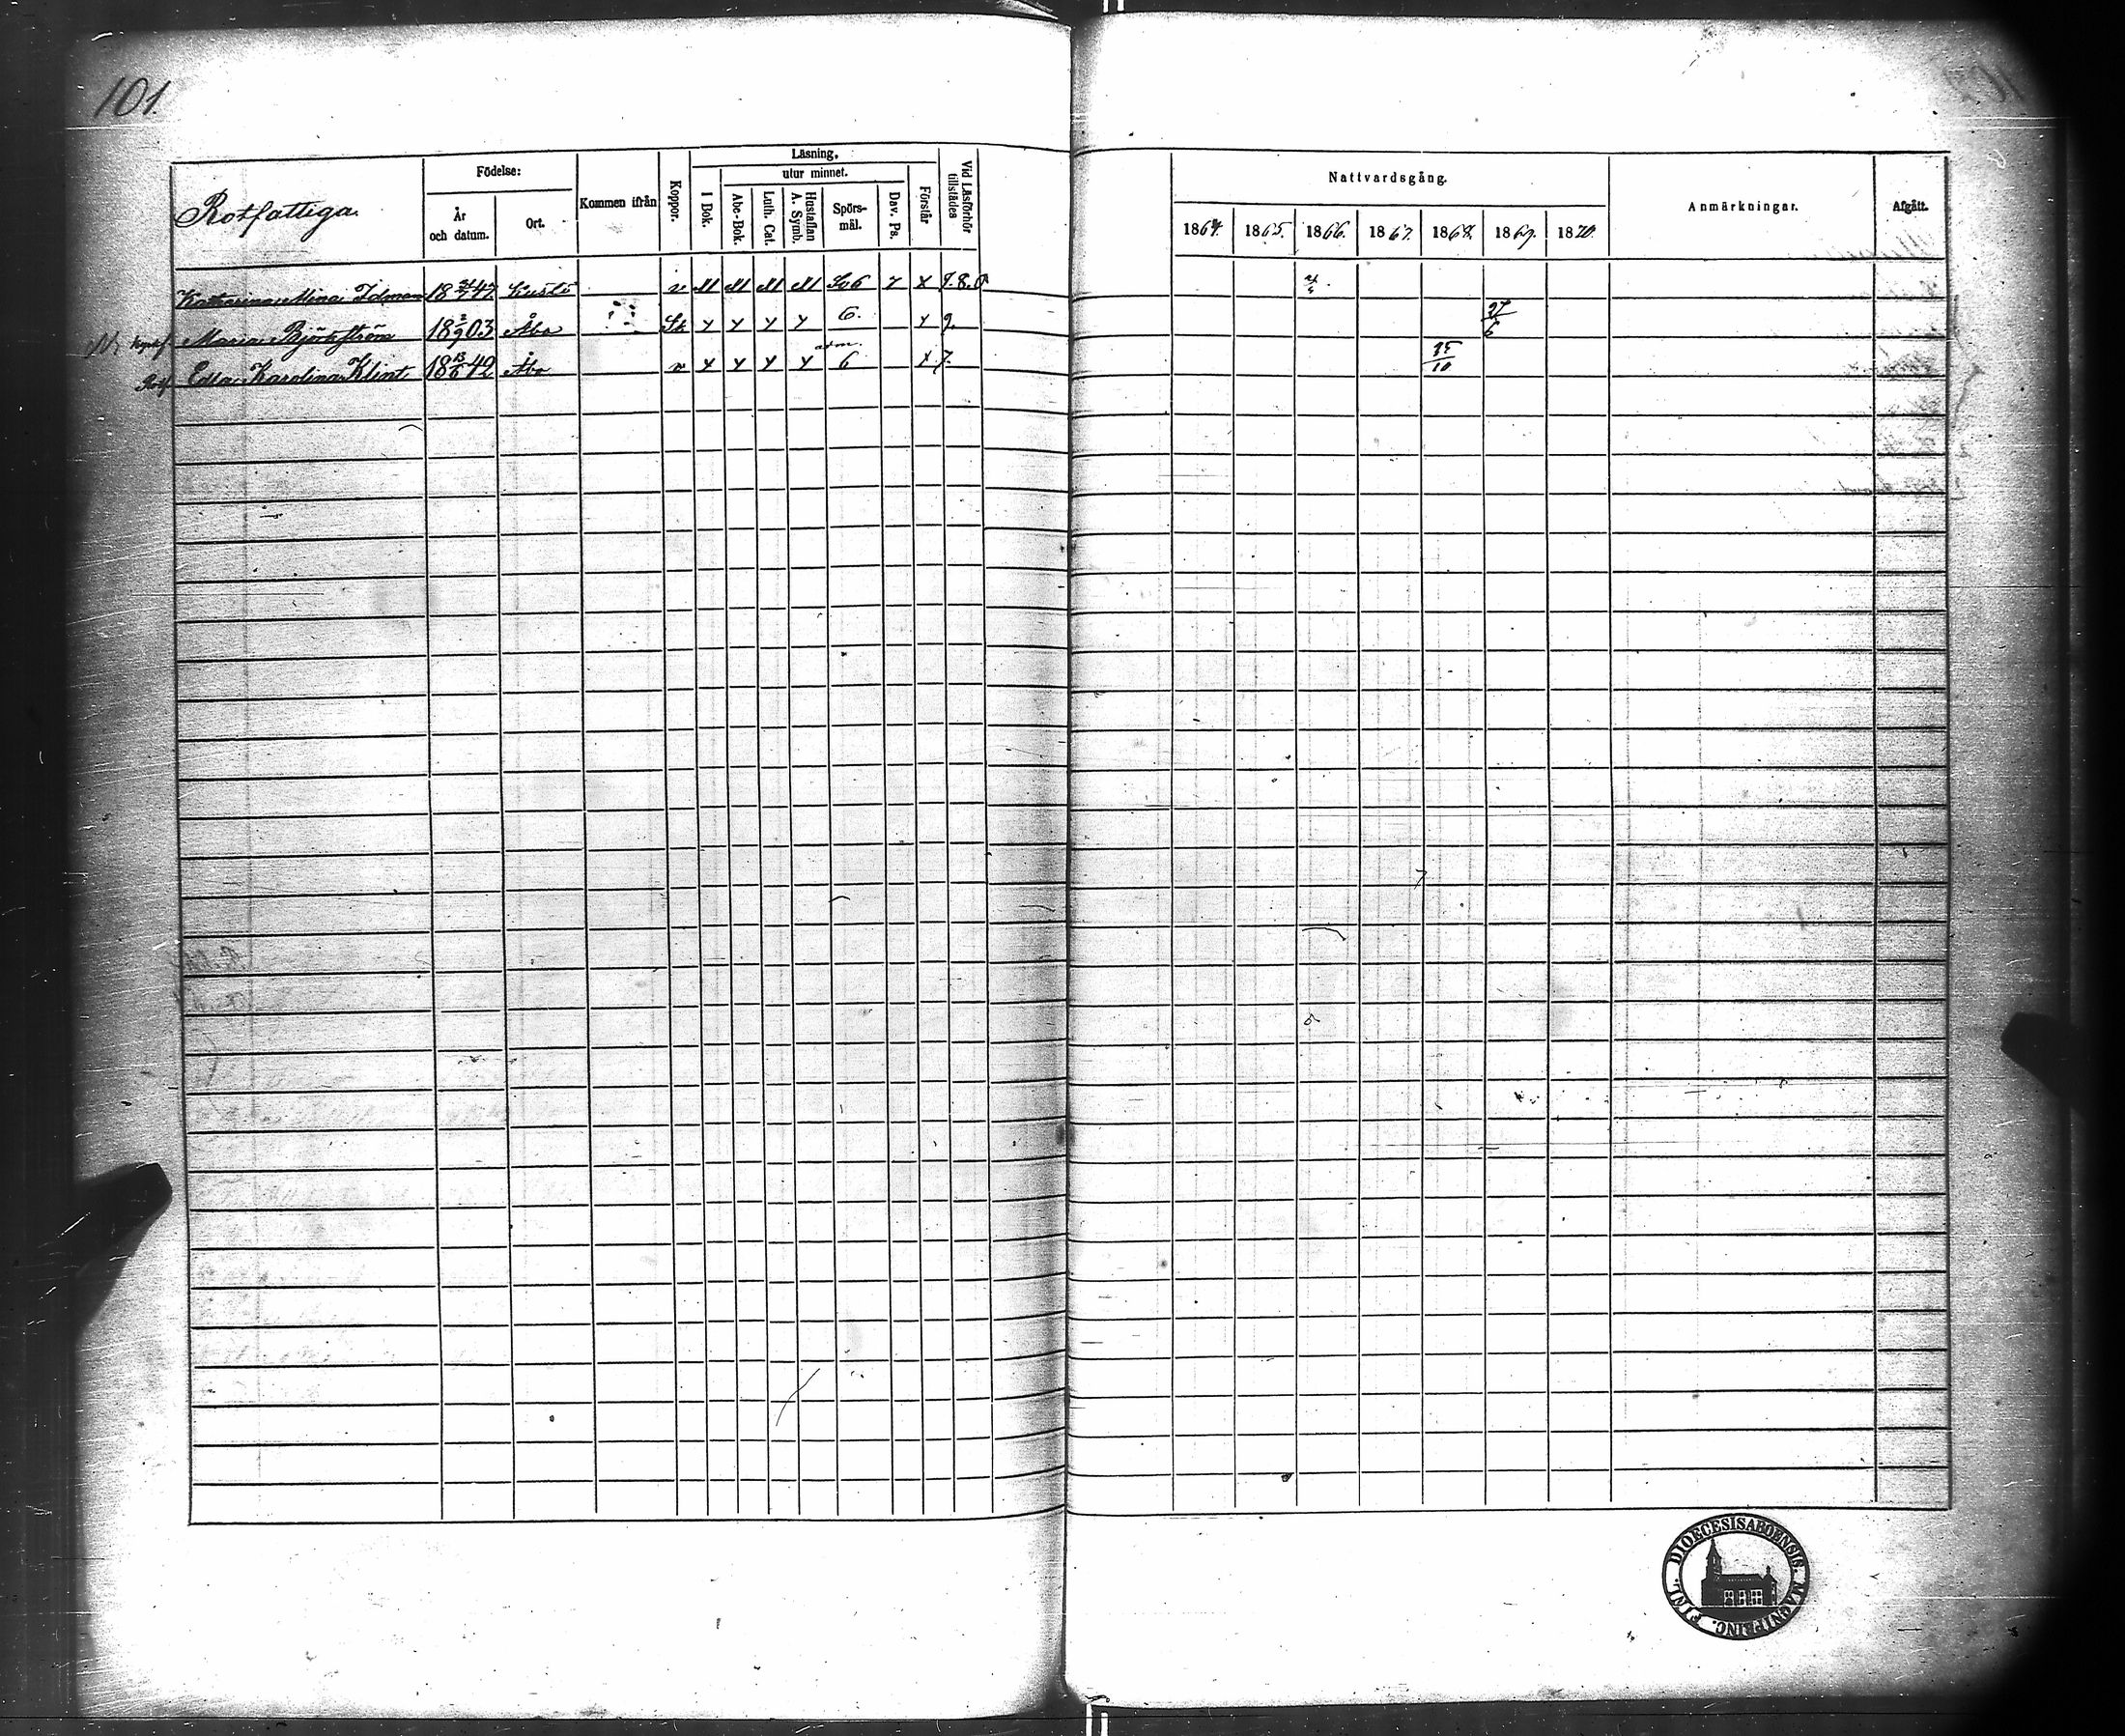 101.
Rotfattiga.
Födelse:
År och datum.
Ort.
Kommen ifrån
Koppor.
Läsning,
I Bok.
utur minnet.
Abc-Bok.
Luth. Cat.
Hustaflan A. Symb.
Spörsmål.
Dav. Ps.
Förstår
Vid Läsförhör tillstädes
Nattvardsgång.
1864. 1865. 1866. 1867. 1868. 1869. 1870.
Anmärkningar.
Afgått.
Katharina Mina Idman 18 47 Kustö v
Maria Björkström 18 3/9 03 Åbo y y y y 6. y 9. 27/6
Rotf. Edla Karolina Klint 18 13/6 42 Åbo v y y y y adm. 6 x 7. 25/10
DIOECESIS ABOENSIS. MAGNI PRINC. FINL.